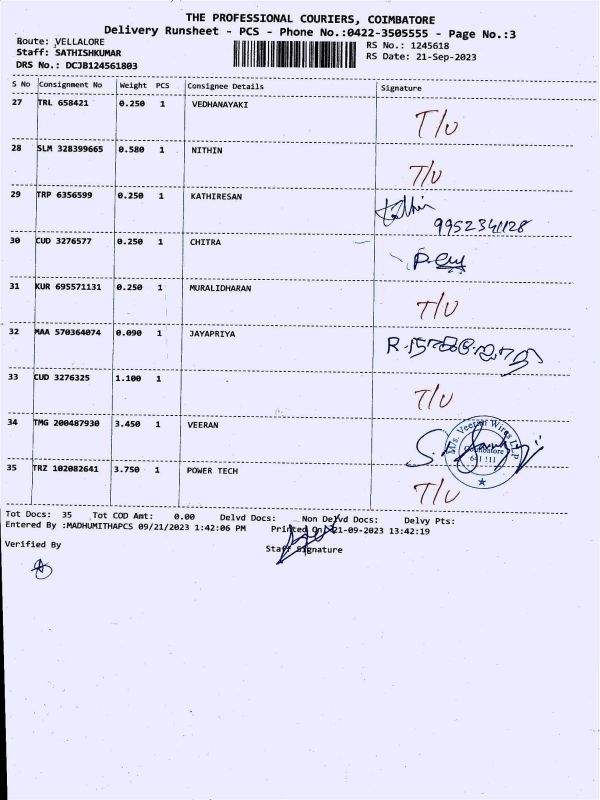 THE PROFESSIONAL COURIERS, COIMBATORE
Delivery Runsheet - PCS - Phone No.:0422-3505555 - Page No.:3
Route: VELLALORE
Staff: SATHISHKUMAR
DRS No.: DCJB124561803
RS No.: 1245618
RS Date: 21-Sep-2023
S No Consignment No Weight PCS Consignee Details Signature
27 TRL 658421 0.250 1 VEDHANAYAKI T/U
28 SLM 328399665 0.580 1 NITHIN T/U
29 TRP 6356599 0.250 1 KATHIRESAN
9952341128
30 CUD 3276577 0.250 1 CHITRA
31 KUR 695571131 0.250 1 MURALIDHARAN T/U
32 MAA 570364074 0.090 1 JAYAPRIYA
33 CUD 3276325 1.100 1 T/U
34 TMG 200487930 3.450 1 VEERAN
M/s. Veeran Wires LLP
Coimbatore
641 111
35 TRZ 102082641 3.750 1 POWER TECH T/U
Tot Docs: 35 Tot COD Amt: 0.00 Delvd Docs: Non Delvd Docs: Delvy Pts:
Entered By :MADHUMITHAPCS 09/21/2023 1:42:06 PM Printed On 21-09-2023 13:42:19
Verified By Staff Signature